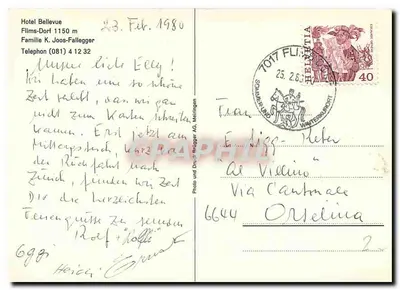 Hotel Bellevue
Flims-Dorf 1150 m
Familie K. Joos-Fallegger
Telephon (081) 4 12 32
23. Feb. 1980
Unsere liebe Elly!
Wir haben eine so schöne
Zeit gehabt, dass wir gar
nicht zum Karten schreiben
kamen. Erst jetzt am
Mittagstisch, kurz vor
der Rückfahrt nach
Zürich, finden wir Zeit
Dir die herzlichsten
zu senden
Rolf +
Heidi
Photo und Druck Rud. Suter AG,
7017 FLIMS
SOMMER UND WINTERKURORT
HELVETIA
40
Frau
E.
Al Villino
Via Cantonale
6644 Orselina
2